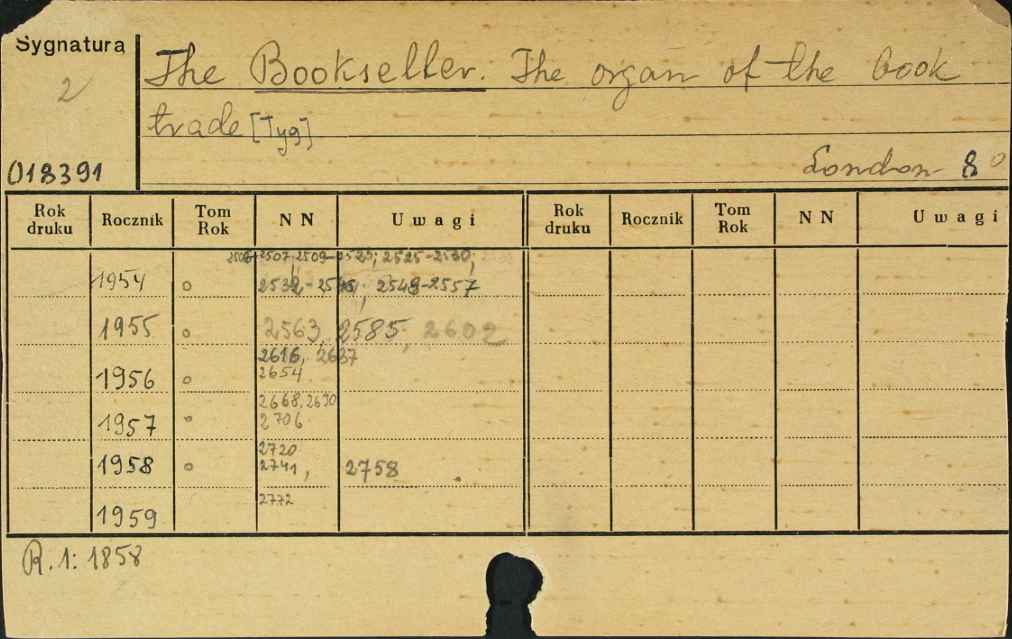 Sygnatura
2
018391
The Bookseller. The organ of the book
trade [Tyg]
London 8°
Rok druku Rocznik Tom Rok NN Uwagi Rok druku Rocznik Tom Rok NN Uwagi
2507, 2509-2523; 2525-2530;
1954 o 2549-2557
1955 o 2563, 2585, 2602
2616, 2637
1956 o 2654
2668, 2690
1957 o 2706
2720
1958 o 2741, 2758
2772
1959
R. 1: 1858